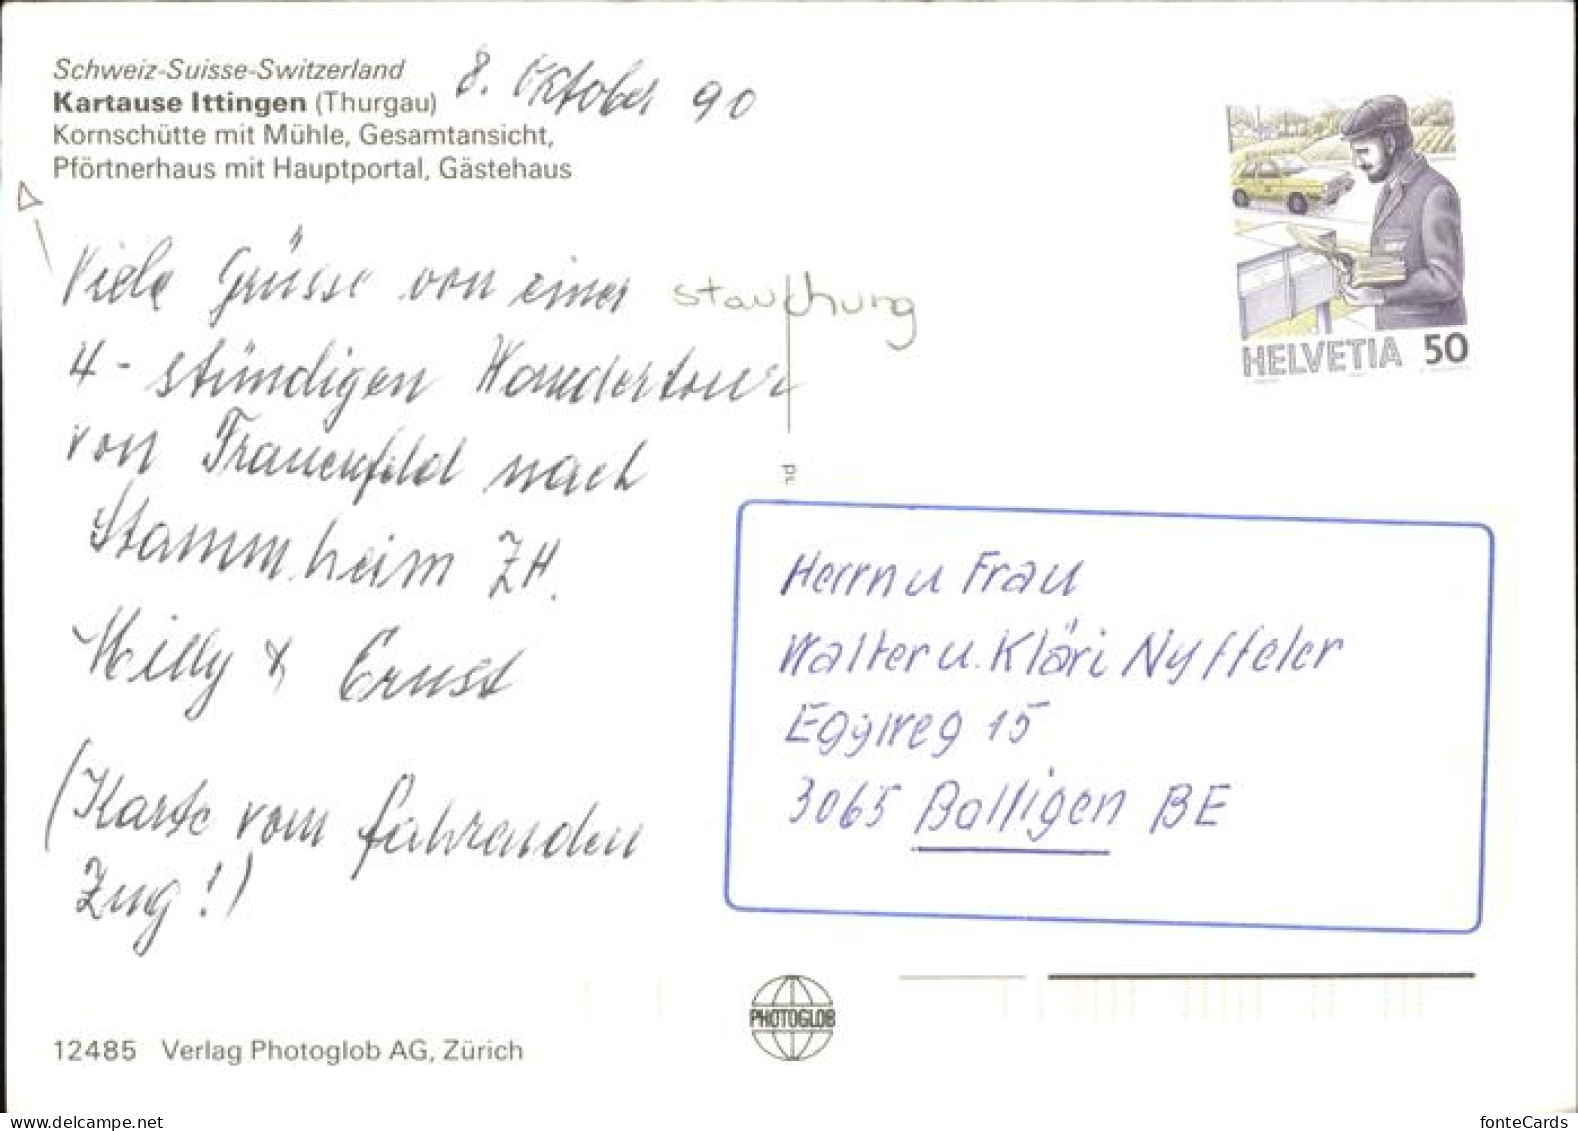 Schweiz-Suisse-Switzerland
Kartause Ittingen (Thurgau)
Kornschütte mit Mühle, Gesamtansicht,
Pförtnerhaus mit Hauptportal, Gästehaus
8. Oktober 90
Viele Grüsse von einer
4-stündigen Wandertour
von Frauenfeld nach
Stammheim ZH.
Willy & Ernst
(Karte vom fahrenden
Zug!)
stauchung
HELVETIA 50
Herrn u Frau
Walter u. Kläri Nyffeler
Eggweg 15
3065 Bolligen BE
PHOTOGLOB
12485 Verlag Photoglob AG, Zürich
www.delcampe.net
fonteCards